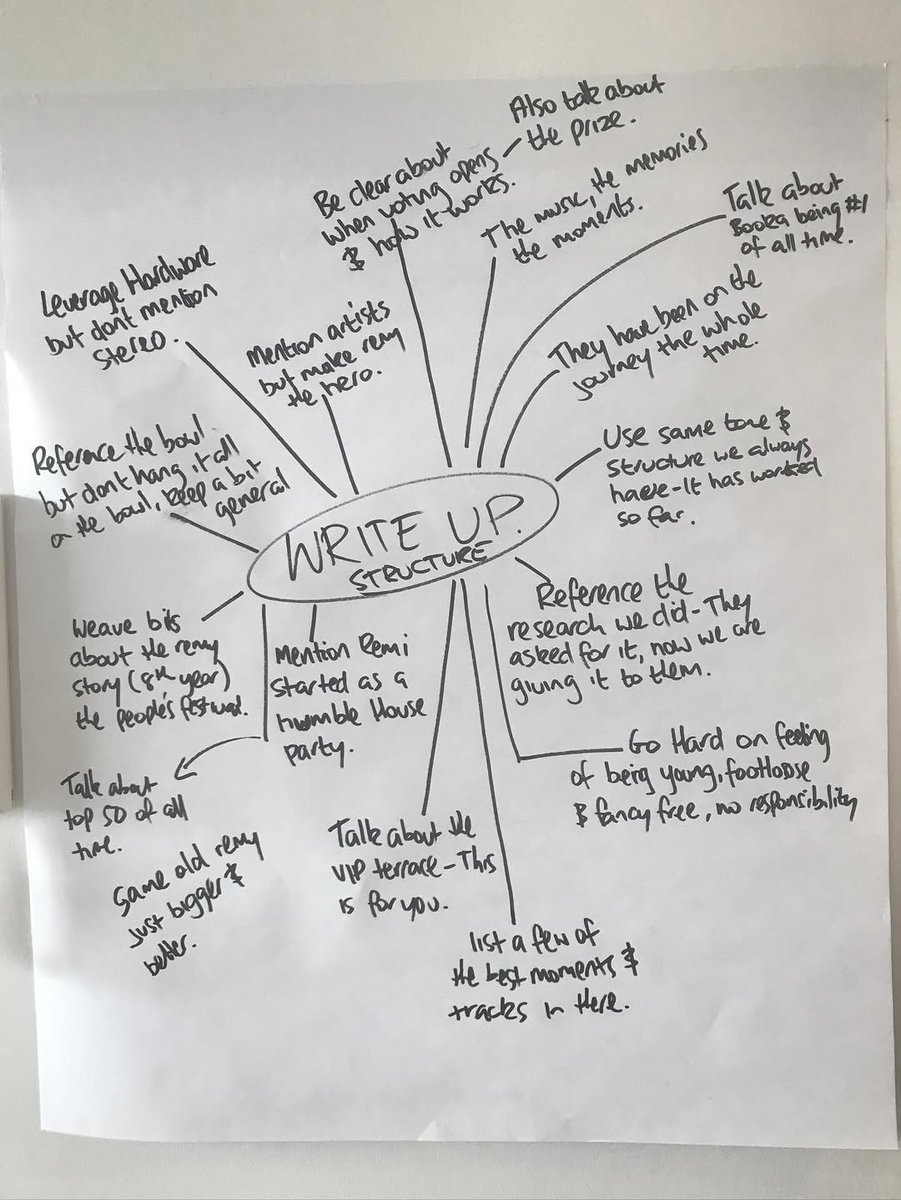 Also talk about
the prize.
Be clear about
when voting opens
& how it works.
The music, the memories
the moments.
Talk about
Booka being #1
of all time.
Leverage Hardware
but dont mention
stereo.
Mention artists
but make remy
the hero.
They have been on the
journey the whole
time.
Reference the bowl.
but dont hang it all
on the bowl, keep a bit
general
Use same tone &
structure we always
have - It has worked
so far.
WRITE UP.
STRUCTURE
Reference the
research we did - They
asked for it, now we are
giving it to them.
Weave bits
about the remy
story (8th year)
the people's festival.
Mention Remi
started as a
humble House
party.
Go Hard on feeling
of being young, footloose
& fancy free, no responsibility
Talk about
top 50 of all
time.
Same old remy
just bigger &
better.
Talk about the
VIP terrace - This
is for you.
list a few of
the best moments &
tracks in there.